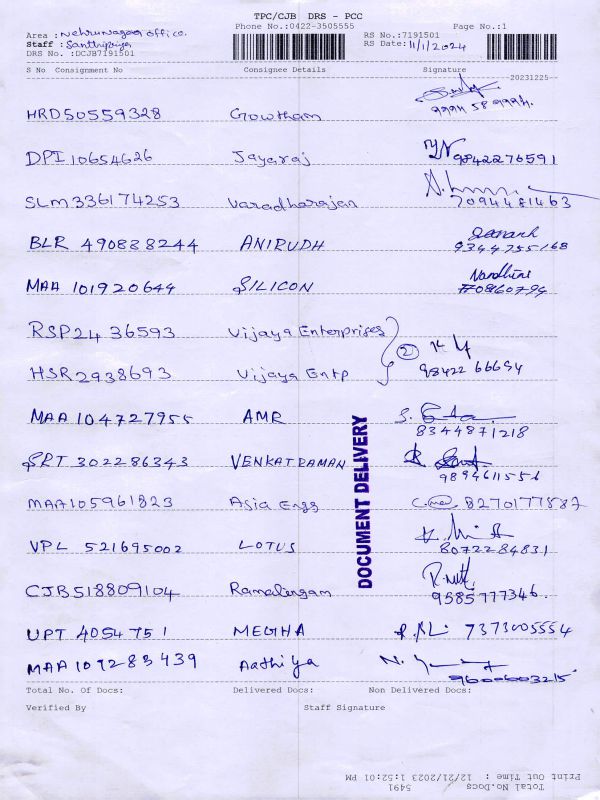 TPC/CJB DRS - PCC
Phone No.:0422-3505555 Page No.:1
Area : Nehrunagar office
Staff : Santhipriya
DRS No. :DCJB7191501
RS No.:7191501
RS Date:11/1/2024
S No Consignment No Consignee Details Signature
20231225
HRD50559328 Gowtham
DPI 10654626 Jayaraj 9842276591
SLM336174253 Varadharajan 7094481463
BLR 490838244 ANIRUDH 9344755168
MAA 101920644 SILICON Nandhini
RSP2436593 Vijaya Enterprises
HSR2938693 Vijaya Entp (2) 98422 66694
MAA 104727955 AMR 8344871218
SRT 302286343 VENKATRAMAN 9894611556
MAA105961823 Asia Engg 8270177887
VPL 521695002 LOTUS 8072284831
CJB518809104 Ramalingam 9585777346
UPT 4054751 MEGHA 7373005554
MAA 109283439 Aathiya 9600603215
DOCUMENT DELIVERY
Total No. Of Docs: Delivered Docs: Non Delivered Docs:
Verified By Staff Signature
Print Out Time : 12/21/2023 1:52:01 PM
Total No.Docs 5491